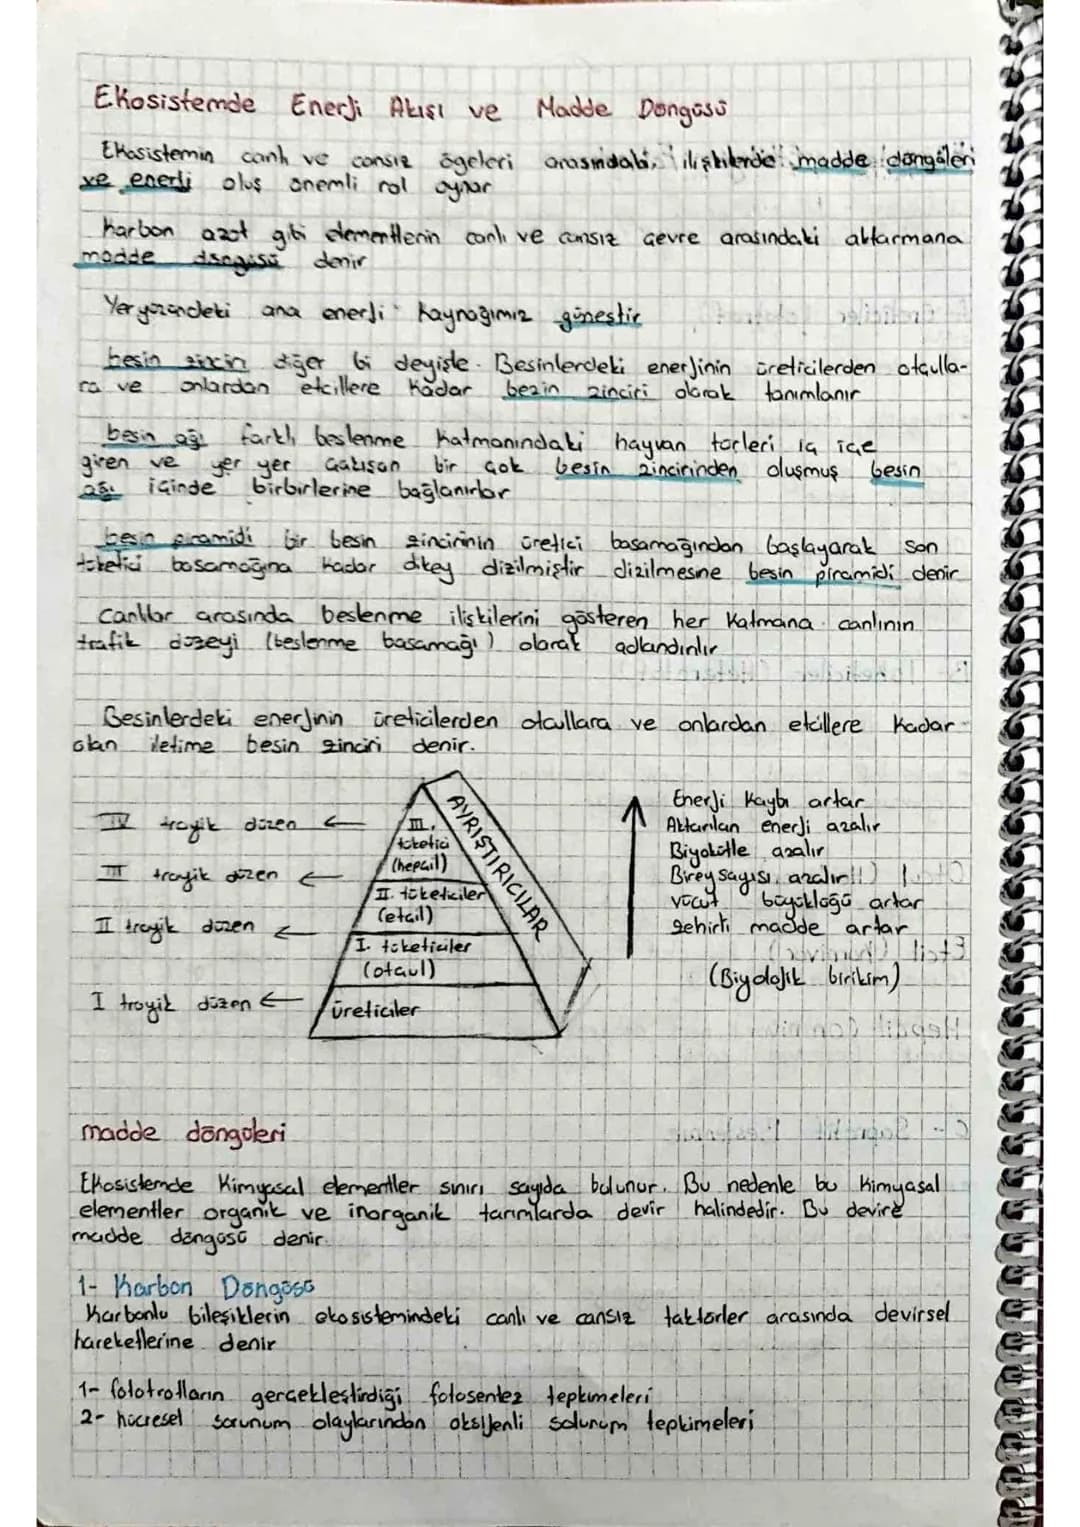 Ekosistemde Enerji Akışı ve Madde Döngüsü
Ekosistemin canlı ve cansız ögeleri arasındaki, ilişkilerde madde döngüleri
ve enerji oluş önemli rol oynar
Karbon azot gibi elementlerin canlı ve cansız çevre arasındaki aktarmana
madde döngüsü denir
Yeryüzündeki ana enerji kaynağımız güneştir
besin zincin diğer bi deyişle. Besinlerdeki enerjinin üreticilerden otçulla-
ra ve onlardan etcillere kadar besin zinciri olarak tanımlanır
besin ağı farklı beslenme katmanındaki hayvan türleri iç içe
giren ve yer yer çakışan bir çok besin zincirinden oluşmuş besin
ağı içinde birbirlerine bağlanırlar
besin piramidi bir besin zincirinin üretici basamağından başlayarak son
tüketici basamağına kadar dikey dizilmiştir dizilmesine besin piramidi denir
Canlılar arasında beslenme ilişkilerini gösteren her katmana canlının
trafik düzeyi (beslenme basamağı) olarak adlandırılır
Besinlerdeki enerjinin üreticilerden otcullara ve onlardan etcillere kadar
olan iletime besin zinciri denir.
IV troyik düzen ←
III troyik düzen ←
II troyik düzen ←
I troyik düzen ←
III.
tüketici
(hepçil)
II. tüketiciler
(etçil)
I. tüketiciler
(otçul)
üreticiler
AYRIŞTIRICILAR
Enerji kaybı artar
Aktarılan enerji azalır
Biyokütle azalır
Birey sayısı azalır
vücut büyüklüğü artar
zehirli madde artar
(Biyolojik birikim)
madde döngüleri
Ekosistemde kimyasal elementler sınırı sayıda bulunur. Bu nedenle bu kimyasal
elementler organik ve inorganik tarımlarda devir halindedir. Bu devire
madde döngüsü denir.
1- Karbon Döngüsü
Karbonlu bileşiklerin ekosistemindeki canlı ve cansız faktörler arasında devirsel
hareketlerine denir
1- fototrofların gerçekleştirdiği fotosentez tepkimeleri
2- hücresel solunum olaylarından oksijenli solunum tepkimeleri